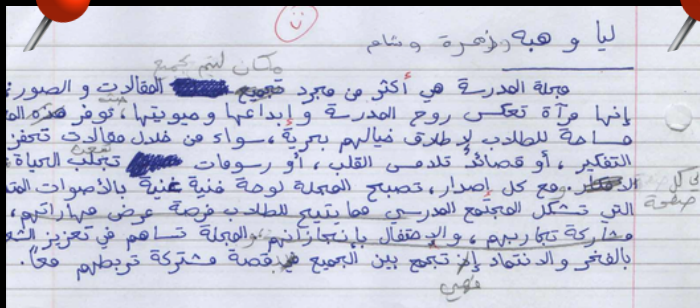 ليا و هبة وزهرة وشام
مكان ليتم تجميع
مجلة المدرسة هي أكثر من مجرد المقالات و الصور
إنها مرآة تعكس روح المدرسة و إبداعها و حيويتها، توفر هذه
مساحة للطلاب لإطلاق خيالهم بحرية، سواء من خلال مقالات تحفز
التفكير، أو قصائد تلامس القلب، أو رسومات تجلب الحياة
مع كل إصدار، تصبح المجلة لوحة فنية غنية بالأصوات
في كل صفحة
التي تشكل المجتمع المدرسي مما يتيح للطلاب فرصة عرض مهاراتهم،
مشاركة تجاربهم، والاحتفال بإنجازاتهم، المجلة تساهم في تعزيز
بالفخر والانتماء إذ تجمع بين الجميع قصة مشتركة تربطهم معاً.
فهي